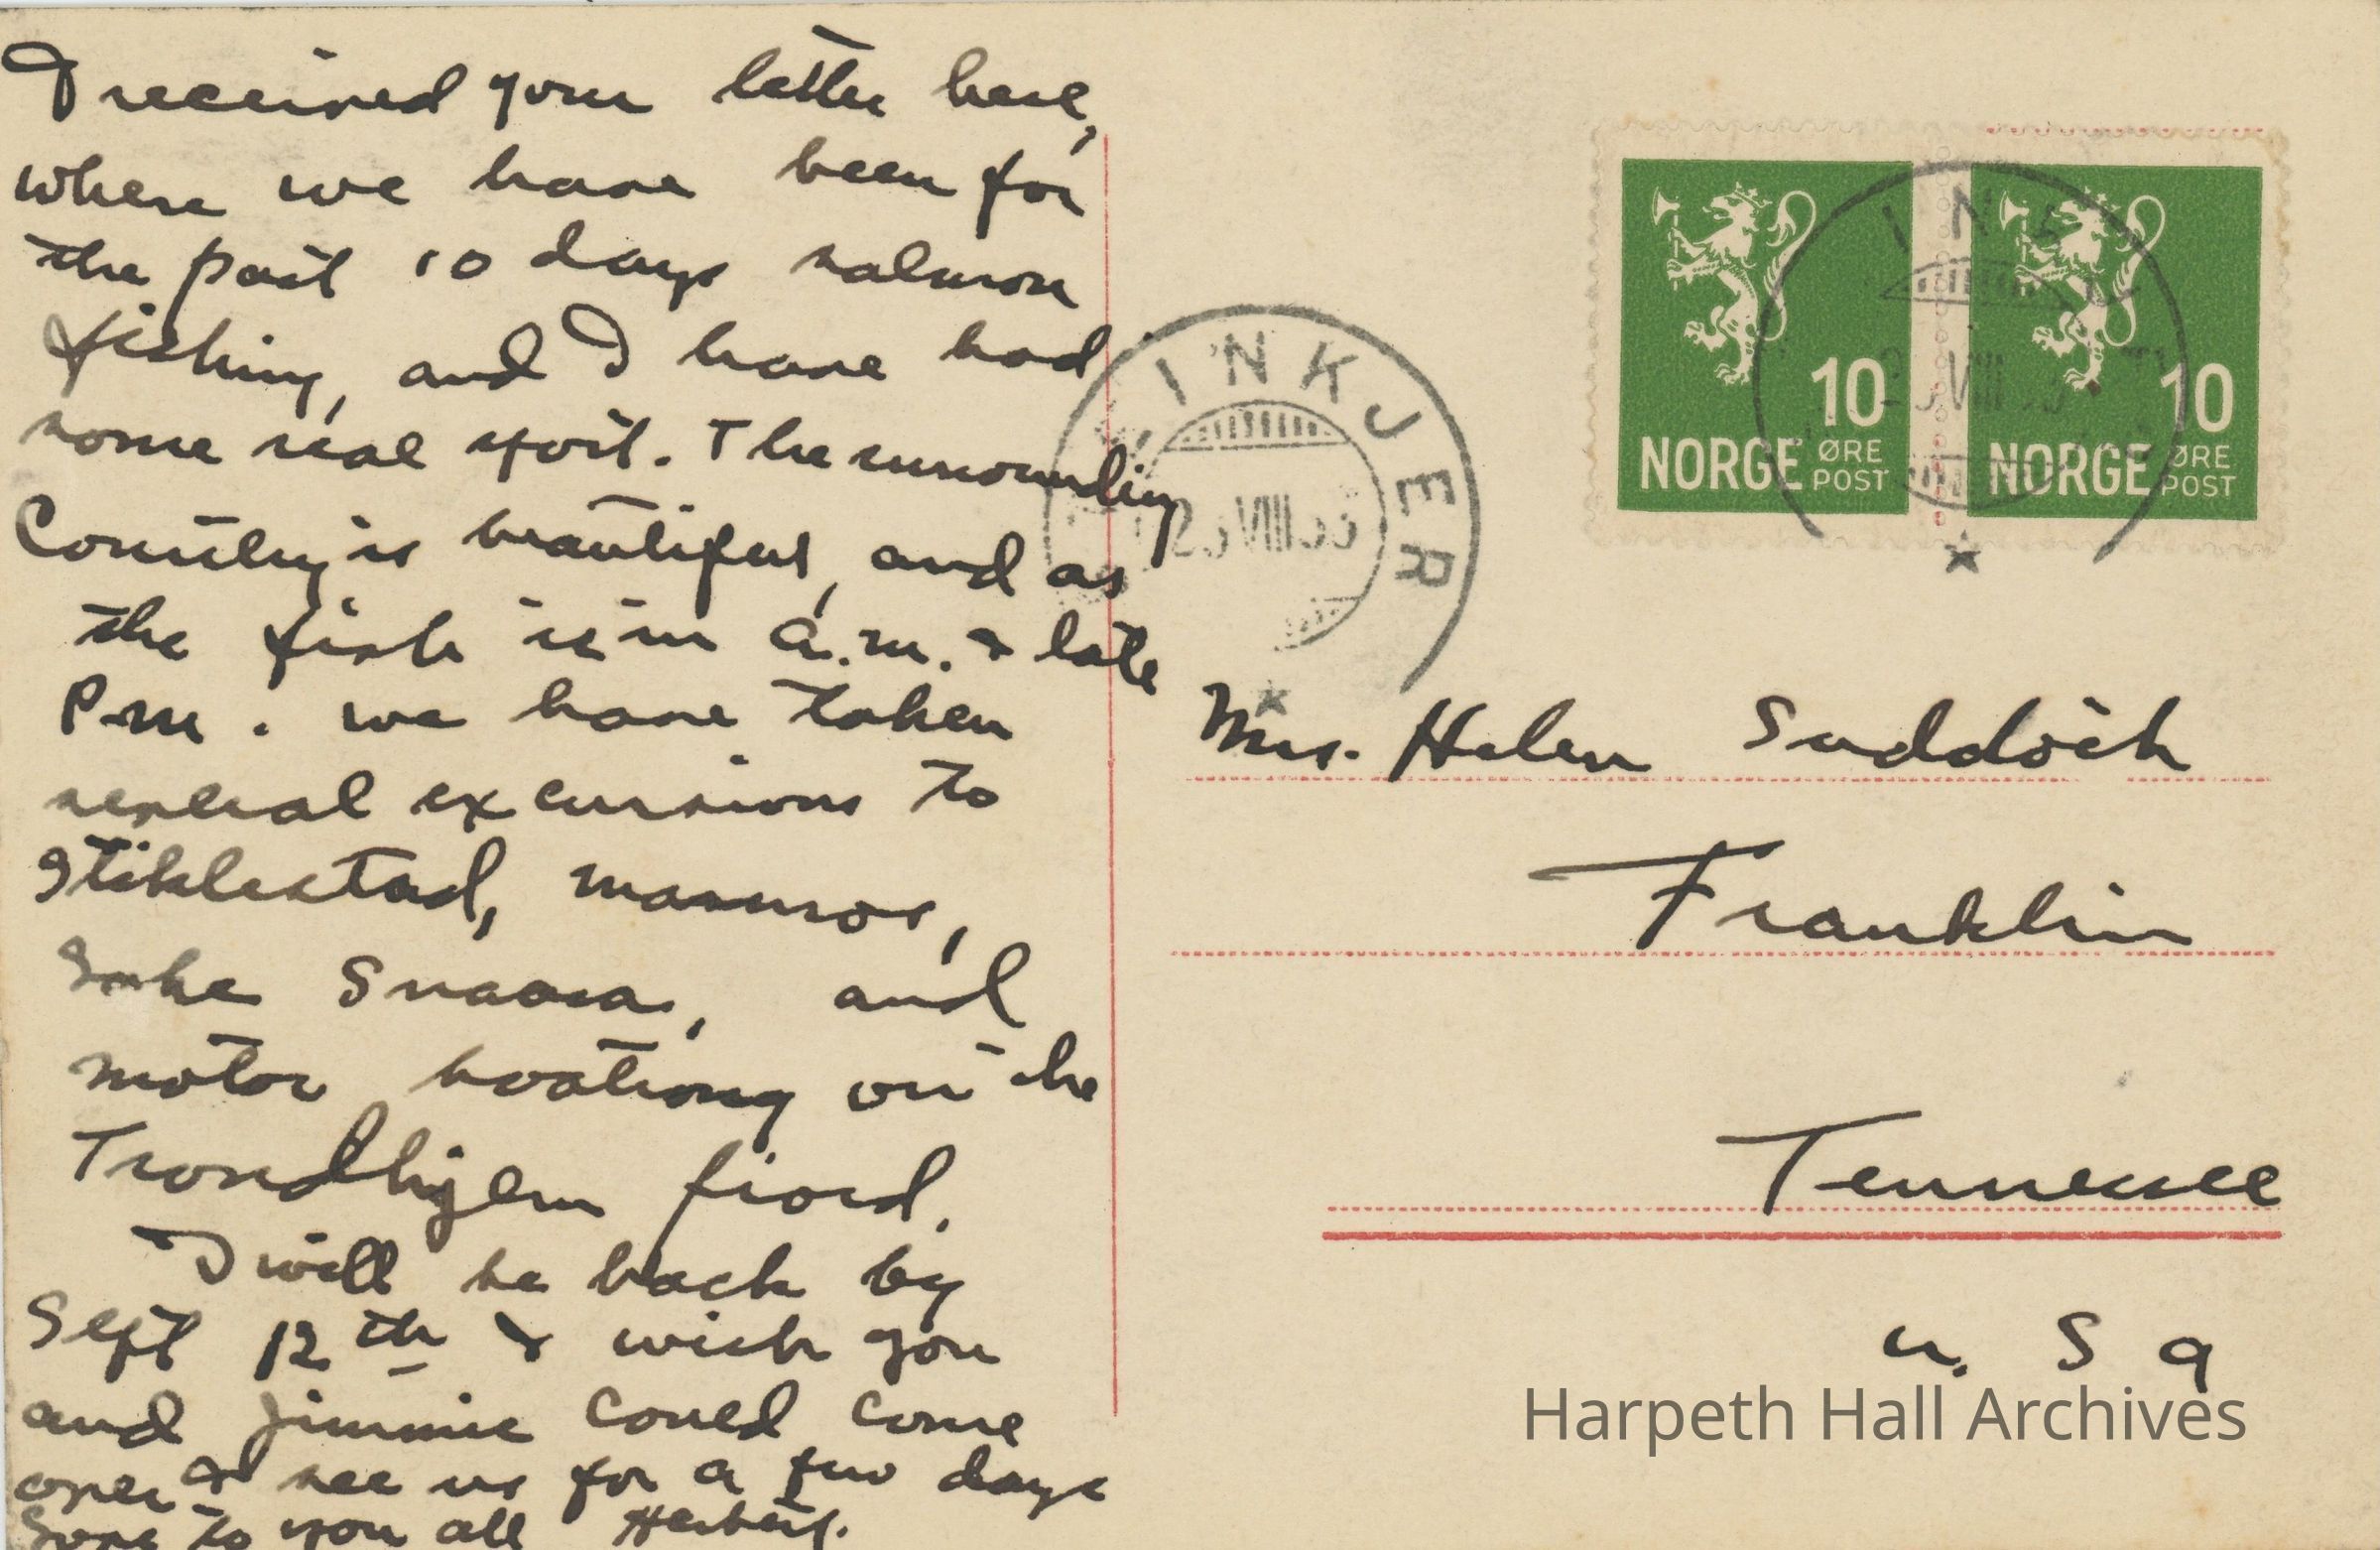 I received your letter here,
where we have been for
the past 10 days salmon
fishing, and I have had
some real sport. The surrounding
Country is beautiful, and as
the fish is in a.m. & late
P.m. we have taken
several excursions to
Stiklestad,
Lake Snaasa, and
motor boating on the
Trondhjem fiord.
I will be back by
Sept 12th & wish you
and Jimmie could come
over & see us for a few days
Love to you all Herbert.
INKJER
VIII
NORGE 10 ØRE POST
NORGE 10 ØRE POST
Mrs. Helen Suddoth
Franklin
Tennessee
U. S A
Harpeth Hall Archives